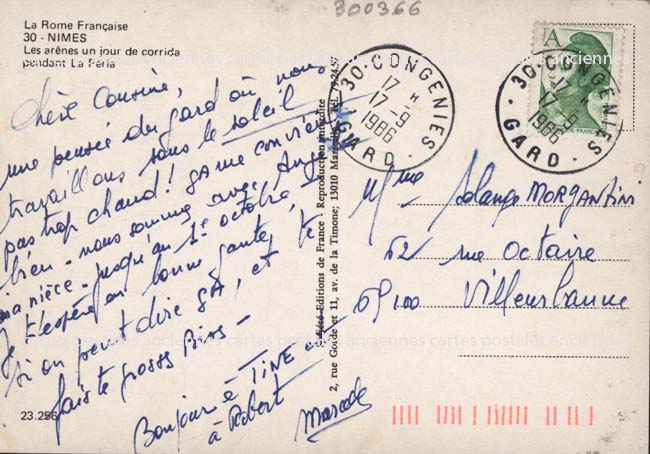 300366
La Rome Française
30 - NIMES
Les arênes un jour de corrida
pendant La Féria
Chère Cousine,
une pensée du gard où nous
travaillons sous le soleil
pas trop chaud! ça me convient
bien - nous sommes avec
ma nièce - jusqu'au 1er octobre -
je t'espère en bonne santé,
si on peut dire ça, et te
fais de grosses Bises -
Bonjour à TINE et
à Robert
Marcelle
23.256
Société Editions de France Reproduction interdite
2, rue Goïde et 11, av. de la Timone; 13010 Marseille. Tél. 79.24.57
30 - CONGENIES
17 H
17 -9
1986
GARD
A
30 - CONGENIES
17 H
17 -9
1986
GARD
Mme Solange MORGANTINI
62 rue Octaire
69100 Villeurbanne
cartes postales anciennes cartes postales anciennes